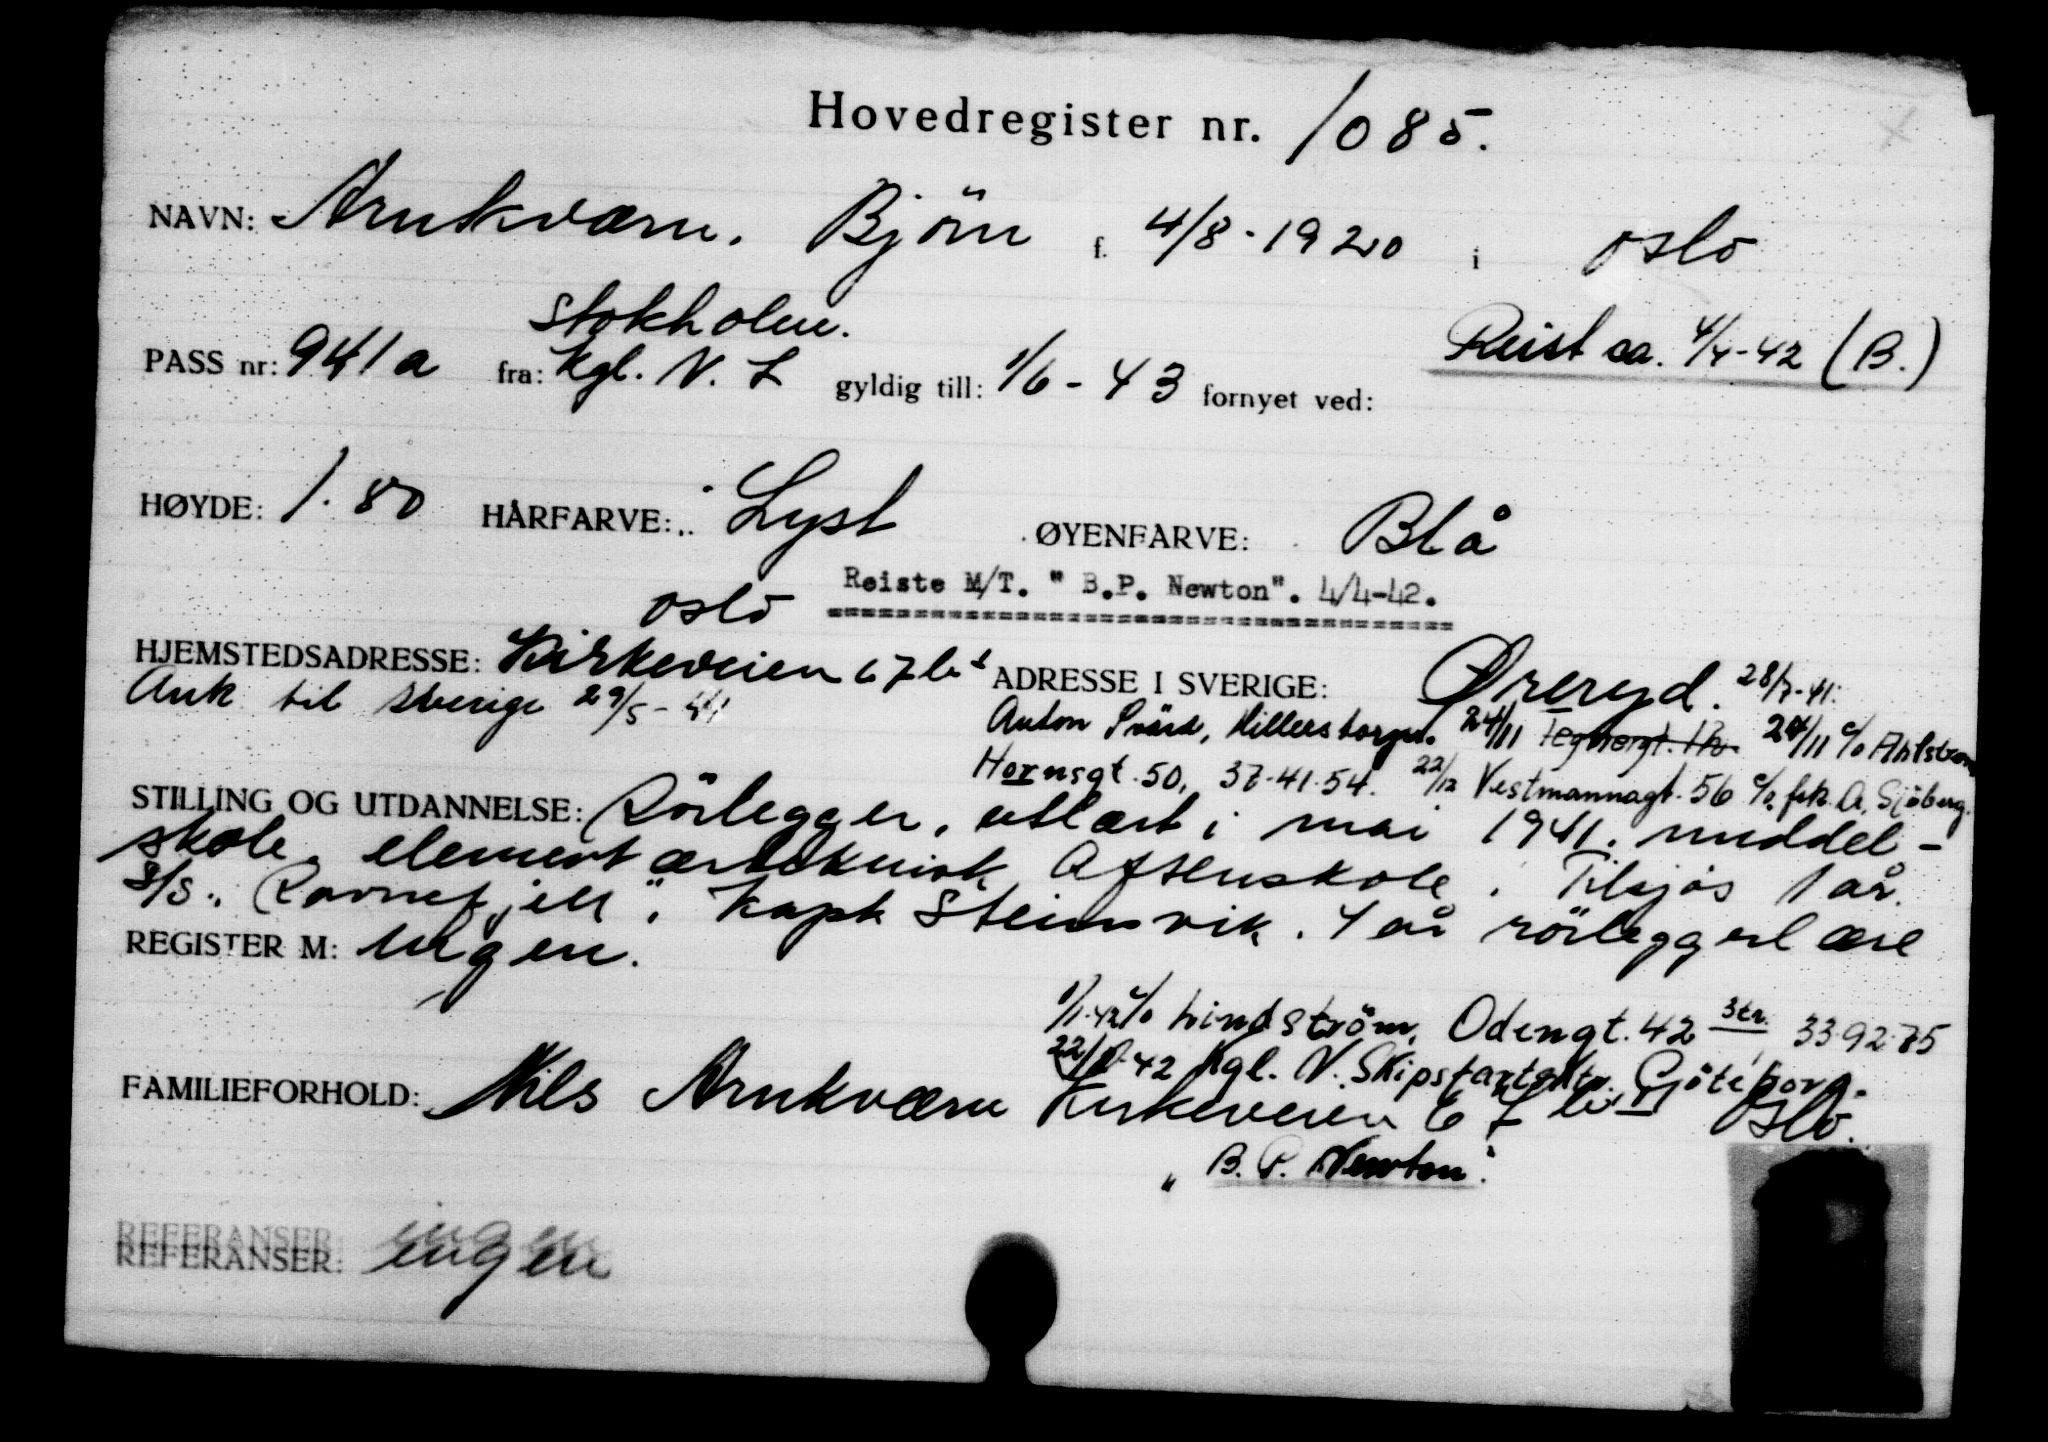 Hovedregister nr. 1085.
NAVN: Arnkværn. Björn f. 4/8-1920 i Oslo
Stokholm.
PASS nr: 941a fra: Kgl. N. L gyldig till: 1/6-43 fornyet ved:
Reist ca. 4/4-42 (B.)
HØYDE: 1.80 HÅRFARVE: Lyst ØYENFARVE: Blå
Reiste M/T. "B.P. Newton". 4/4-42.
Oslo
HJEMSTEDSADRESSE: Kirkeveien 67 ADRESSE I SVERIGE: Øreryd. 28/7-41.
Ank til Sverige 29/5-41
Anton Svärd, Hillerstorp. 24/11 24/11 c/o Ahlstrom
Hornsgt. 50, 37.41.54. 22/12 Vestmannagt. 56 c/o frk. A. Sjöberg.
STILLING OG UTDANNELSE: Rörlegger, utlært i mai 1941. middel-
skole, elementærteknisk Aftenskole. Tilsjös 1 år.
S/S. "Ravnefjell", kapt Steinsvik. 4 år rörleggerlære
REGISTER M: Ingen.
1/1-42 c/o Lindström, Odengt. 42 3tr. 33.92.75
22/1-42 Kgl. N. Skipsfartsktr. Göteborg.
FAMILIEFORHOLD: Nils Arnkværn Kirkeveien 67 Oslo.
"B. P. Newton".
REFERANSER: ingen